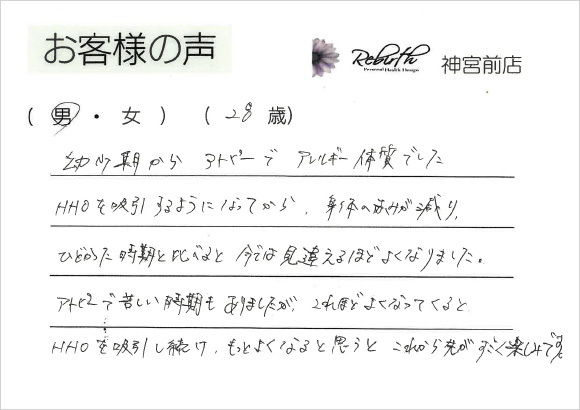 お客様の声
Rebirth
Personal Health Design
神宮前店
( 男 ・ 女 ) ( 28 歳)
幼少期から アトピーで アレルギー体質でした
HHOを吸引するようになってから、身体の痒みが減り、
ひどかった時期と比べると 今では見違えるほどよくなりました。
アトピーで苦しい時期も ありましたが、これほどよくなってくると
HHOを吸引し続け、もっとよくなると思うと これから先がすごく楽しみです